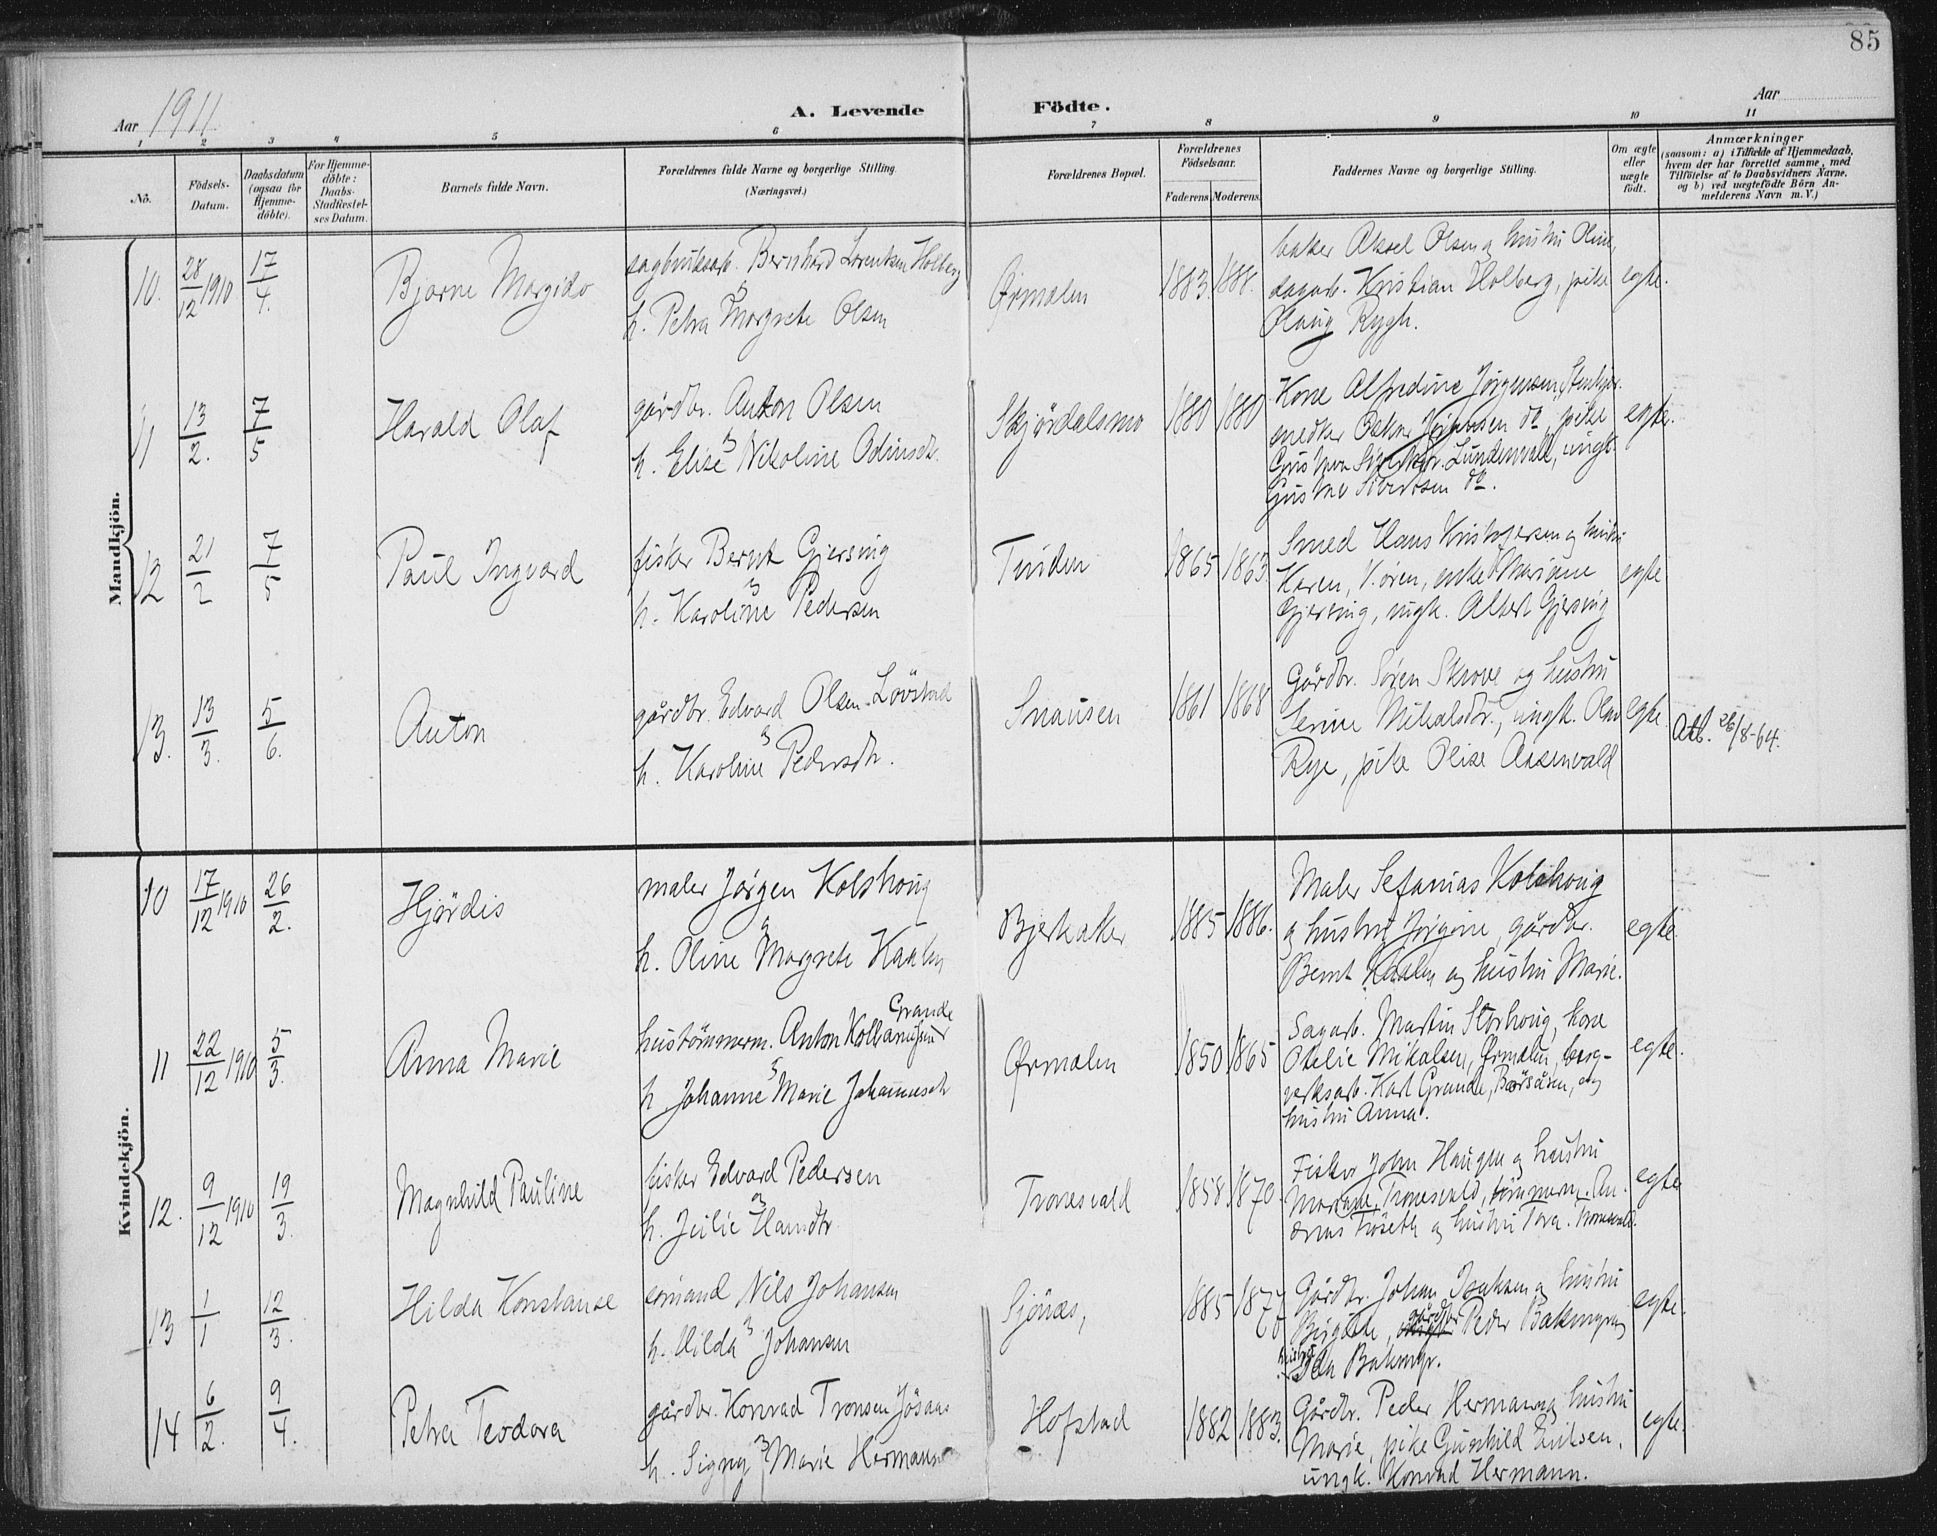 85
Aar 1911
A. Levende Födte.
Aar
1 2 3 4 5 6 7 8 9 10 11
No.
Födsels-Datum.
Daabsdatum (ogsaa for Hjemme-döbte).
For Hjemme-döbte: Daabs-Stadfæstel-ses Datum.
Barnets fulde Navn.
Forældrenes fulde Navne og borgerlige Stilling. (Næringsvei.)
Forældrenes Bopæl.
Forældrenes Födselsaar.
Faderens. Moderens.
Faddernes Navne og borgerlige Stilling.
Om ægte eller uægte födt.
Anmærkninger
(saasom: a) i Tilfælde af Hjemmedaab,
hvem der har forrettet samme, med
Tilföielse af to Daabsvidners Navne,
og b) ved uægtefödte Börn An-
melderens Navn m. V.)
Mandkjön.
10. 28/12 1910 17/4. Bjarne Margido
sagbruksarb. Bernhard Lorentsen Holberg
h. Petra Margrete Olsen
Ørmelen 1883. 1888.
baker Aksel Olsen og hustru Oline,
dagarb. Kristian Holberg, pike
Olaug Rygh.
egte.
11 13/2. 7/5 Harald Olaf
gårdbr. Anton Olsen
h. Elise Nikoline Odinsdtr.
Skjørdalsmo 1880 1880
Kone Alfredine Jørgensen, Stenkjær.
smedker Oskar Johansen do, pike
Lundenvall, ungk.
Gustav Sivertsen do.
egte.
12 21/2 7/5 Paul Ingvard
fisker Bernt Gjersing
h. Karoline Pedersen
Tinden 1865 1863
Smed Hans Kristofersen og hustru
Karen, Ven, enke Mariane
Gjersing, ungk. Albert Gjersing
egte
13. 13/3. 5/6. Anton
gårdbr. Edvard Olsen Løvstad
h. Karoline Pedersdtr.
Snausen 1861 1868
Gårdbr. Søren Skrove og hustru
Serine Mikalsdtr., ungk. Olav
Rye, pike Olise Aksenvald
egte. Att. 26/8-64.
Kvindekjön.
10 17/12 1910 26/2. Hjørdis
maler Jørgen Kolshoug
h. Oline Margrete Kaalen
Bjerkaker 1885 1886.
Maler Sefanias Kolshoug
og hustru Jørgine, gårdbr.
Bernt Kaalen og hustru Marie.
egte.
11 22/12 1910 5/3. Anna Marie
hustømmerm. Anton Kolbanussen Grande
h Johanne Marie Johannesdtr
Ørmelen 1850 1865
Sagarb. Martin Storhoug, kone
Otelie Mikalsen, Ørmelen, berg-
verksarb. Karl Grande, Børsåsen, og
hustru Anna.
egte.
12. 9/12 1910 19/3. Magnhild Pauline
fisker Edvard Pedersen
h. Julie Hansdtr
Tronesvald 1858. 1870
Fisker John Haugen og hustru
Mariane, Tronesvald, tømmerm. An-
dreas Frøseth og hustru Tora. Tronesvald.
egte
13 1/1 12/3. Hilda Konstanse
sømand Nils Johansen
h. Hilda Johansen
Sjønes, 1885 1877
Gårdbr. Johan Isaksen og hustru
Birgitte, gårdbr Peder Bakmyr og
hustru Ida Bakmyr.
egte.
14 6/2. 9/4. Petra Teodora
gårdbr. Konrad Tronsen Jøsaas
h. Signy Marie Hermann
Hofstad 1882 1883.
Gårdbr. Peder Hermann og hustru
Marie, pike Gunhild Eriksen,
ungk. Konrad Hermann.
egte.